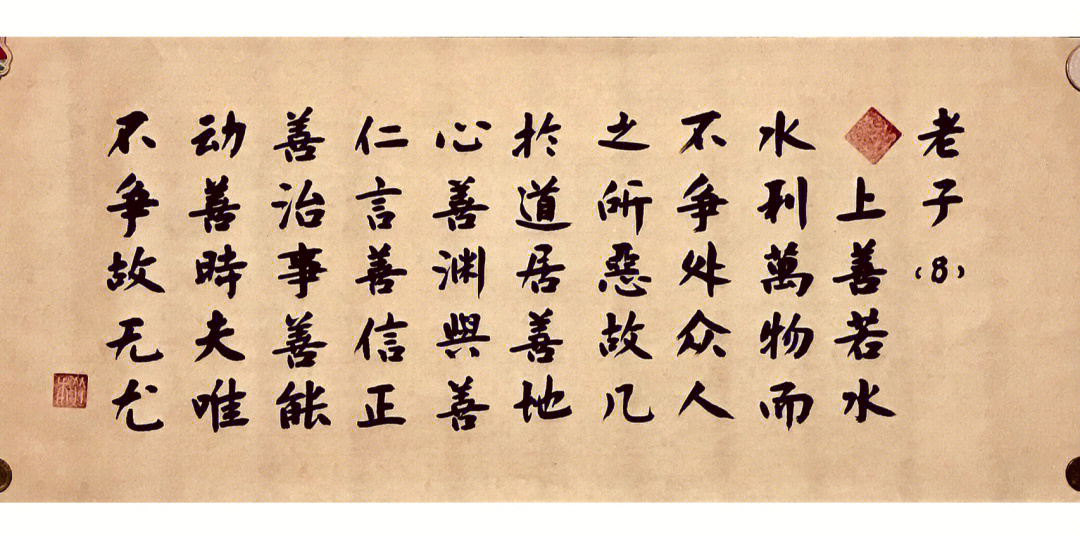 老子(8)
上善若水
水利萬物而
不争处众人
之所惡故几
於道居善地
心善渊與善
仁言善信正
善治事善能
动善時夫唯
不争故无尤